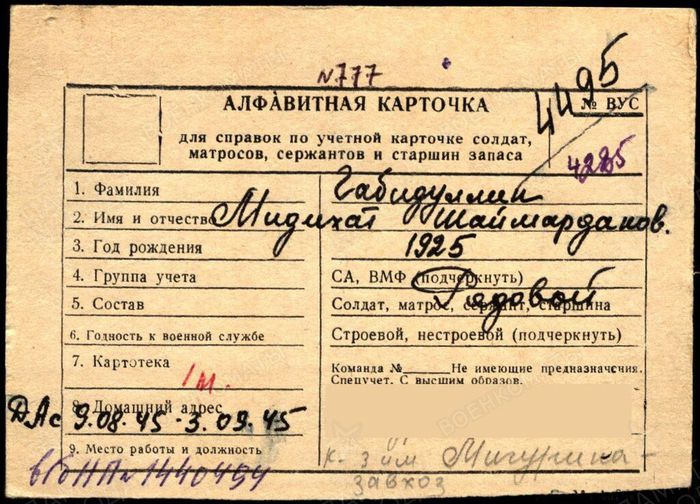 №777
4495
АЛФАВИТНАЯ КАРТОЧКА
№ ВУС
для справок по учетной карточке солдат,
матросов, сержантов и старшин запаса
4285
1. Фамилия Габидуллин
2. Имя и отчество Мидихат Шаймарданов.
3. Год рождения 1925
4. Группа учета СА, ВМФ (подчеркнуть)
5. Состав Солдат, матрос, сержант, старшина Рядовой
6. Годность к военной службе Строевой, нестроевой (подчеркнуть)
7. Картотека Команда № Не имеющие предназначения.
Спецучет. С высшим образов.
1м.
8. Домашний адрес
ДАс 9.08.45-3.09.45
9. Место работы и должность
к-з им Мичурина -
завхоз